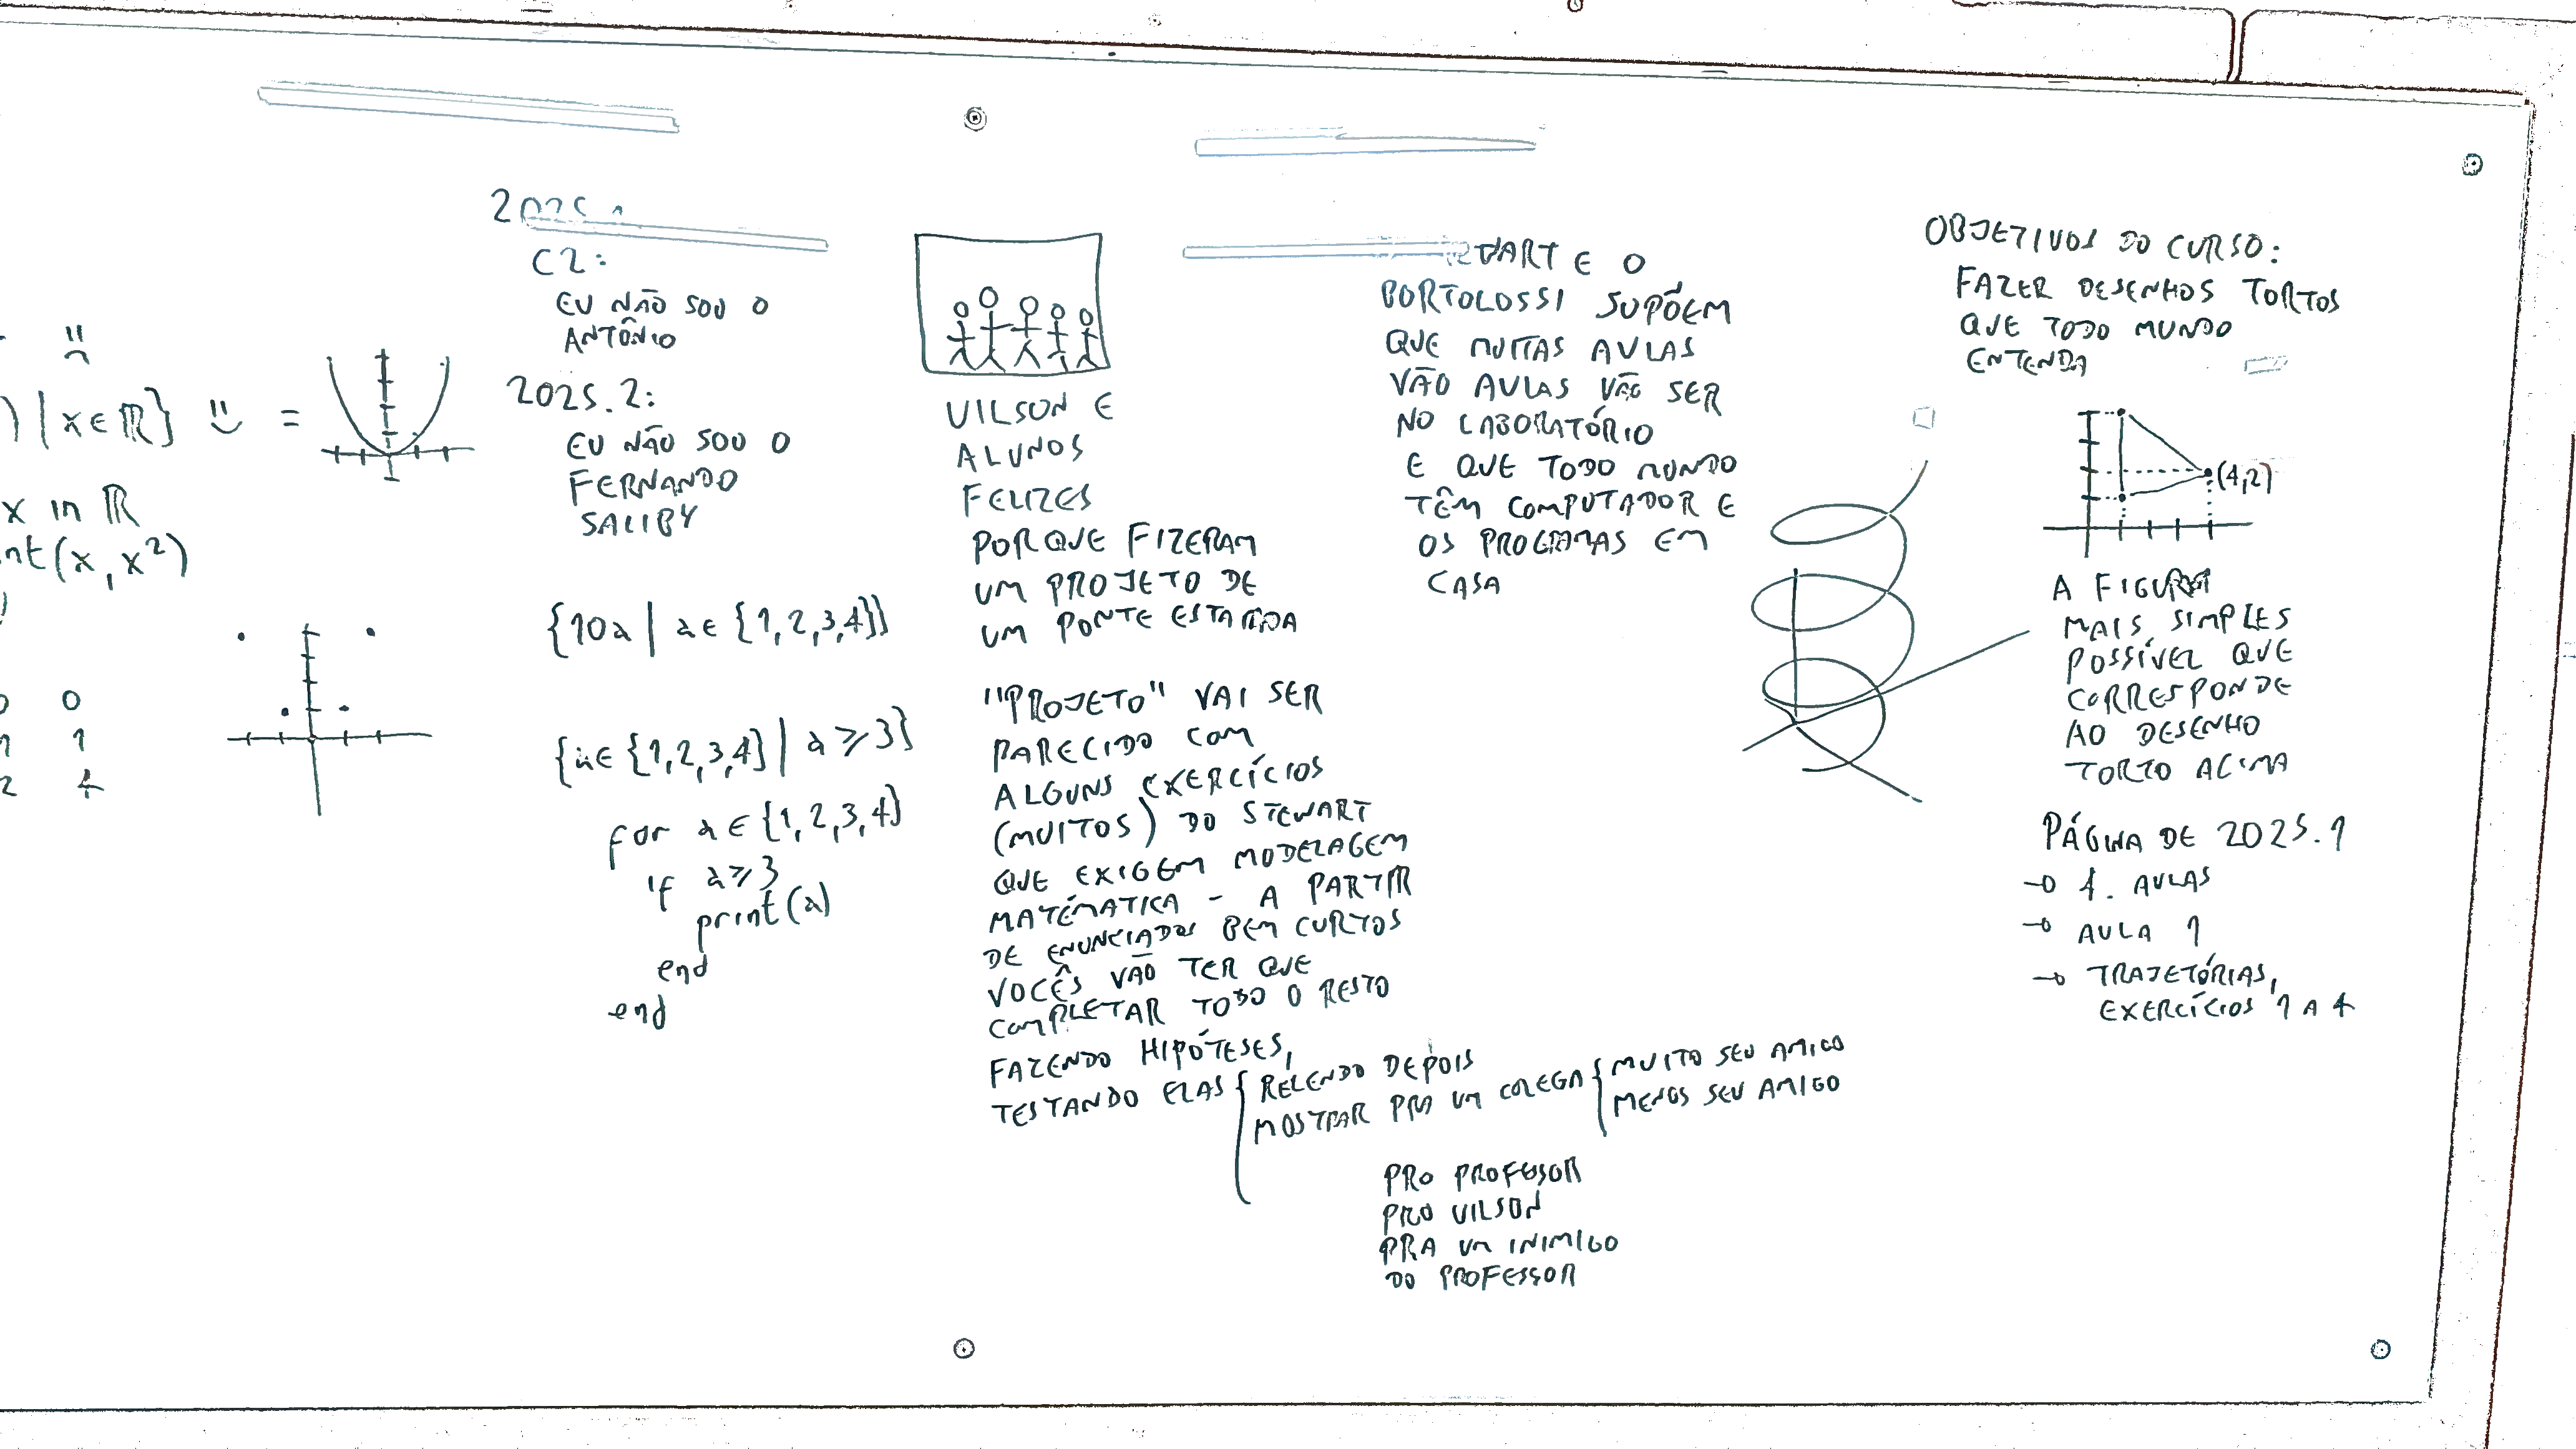 ) | x ∈ ℝ} =
x in ℝ
nt(x, x²)
0
1
2 4
C2:
EU NÃO SOU O
ANTÔNIO
2025.2:
EU NÃO SOU O
FERNANDO
SALIBY
{10a | a ∈ {1,2,3,4}}
{a ∈ {1,2,3,4} | a ≥ 3}
for a ∈ {1,2,3,4}
if a ≥ 3
print(a)
end
end
VILSON E
ALUNOS
FELIZES
PORQUE FIZERAM
UM PROJETO DE
UM PONTE ESTAIADA
"PROJETO" VAI SER
PARECIDO COM
ALGUNS EXERCÍCIOS
(MUITOS) DO STEWART
QUE EXIGEM MODELAGEM
MATÉMATICA - A PARTIR
DE ENUNCIADOS BEM CURTOS
VOCÊS VÃO TER QUE
COMPLETAR TODO O RESTO
FAZENDO HIPÓTESES,
TESTANDO ELAS { RELENDO DEPOIS
MOSTRAR PRA UM COLEGA { MUITO SEU AMIGO
MENOS SEU AMIGO
PRO PROFESSOR
PRO VILSON
PRA UM INIMIGO
DO PROFESSOR
E O
BORTOLOSSI SUPÕEM
QUE MUITAS AULAS
VÃO AULAS VÃO SER
NO LABORATÓRIO
E QUE TODO MUNDO
TÊM COMPUTADOR E
OS PROGRAMAS EM
CASA
OBJETIVOS DO CURSO:
FAZER DESENHOS TORTOS
QUE TODO MUNDO
ENTENDA
(4,2)
A FIGURA
MAIS SIMPLES
POSSÍVEL QUE
CORRESPONDE
AO DESENHO
TORTO ACIMA
PÁGINA DE 2025.1
→ 4. AULAS
→ AULA 1
→ TRAJETÓRIAS,
EXERCÍCIOS 1 A 4